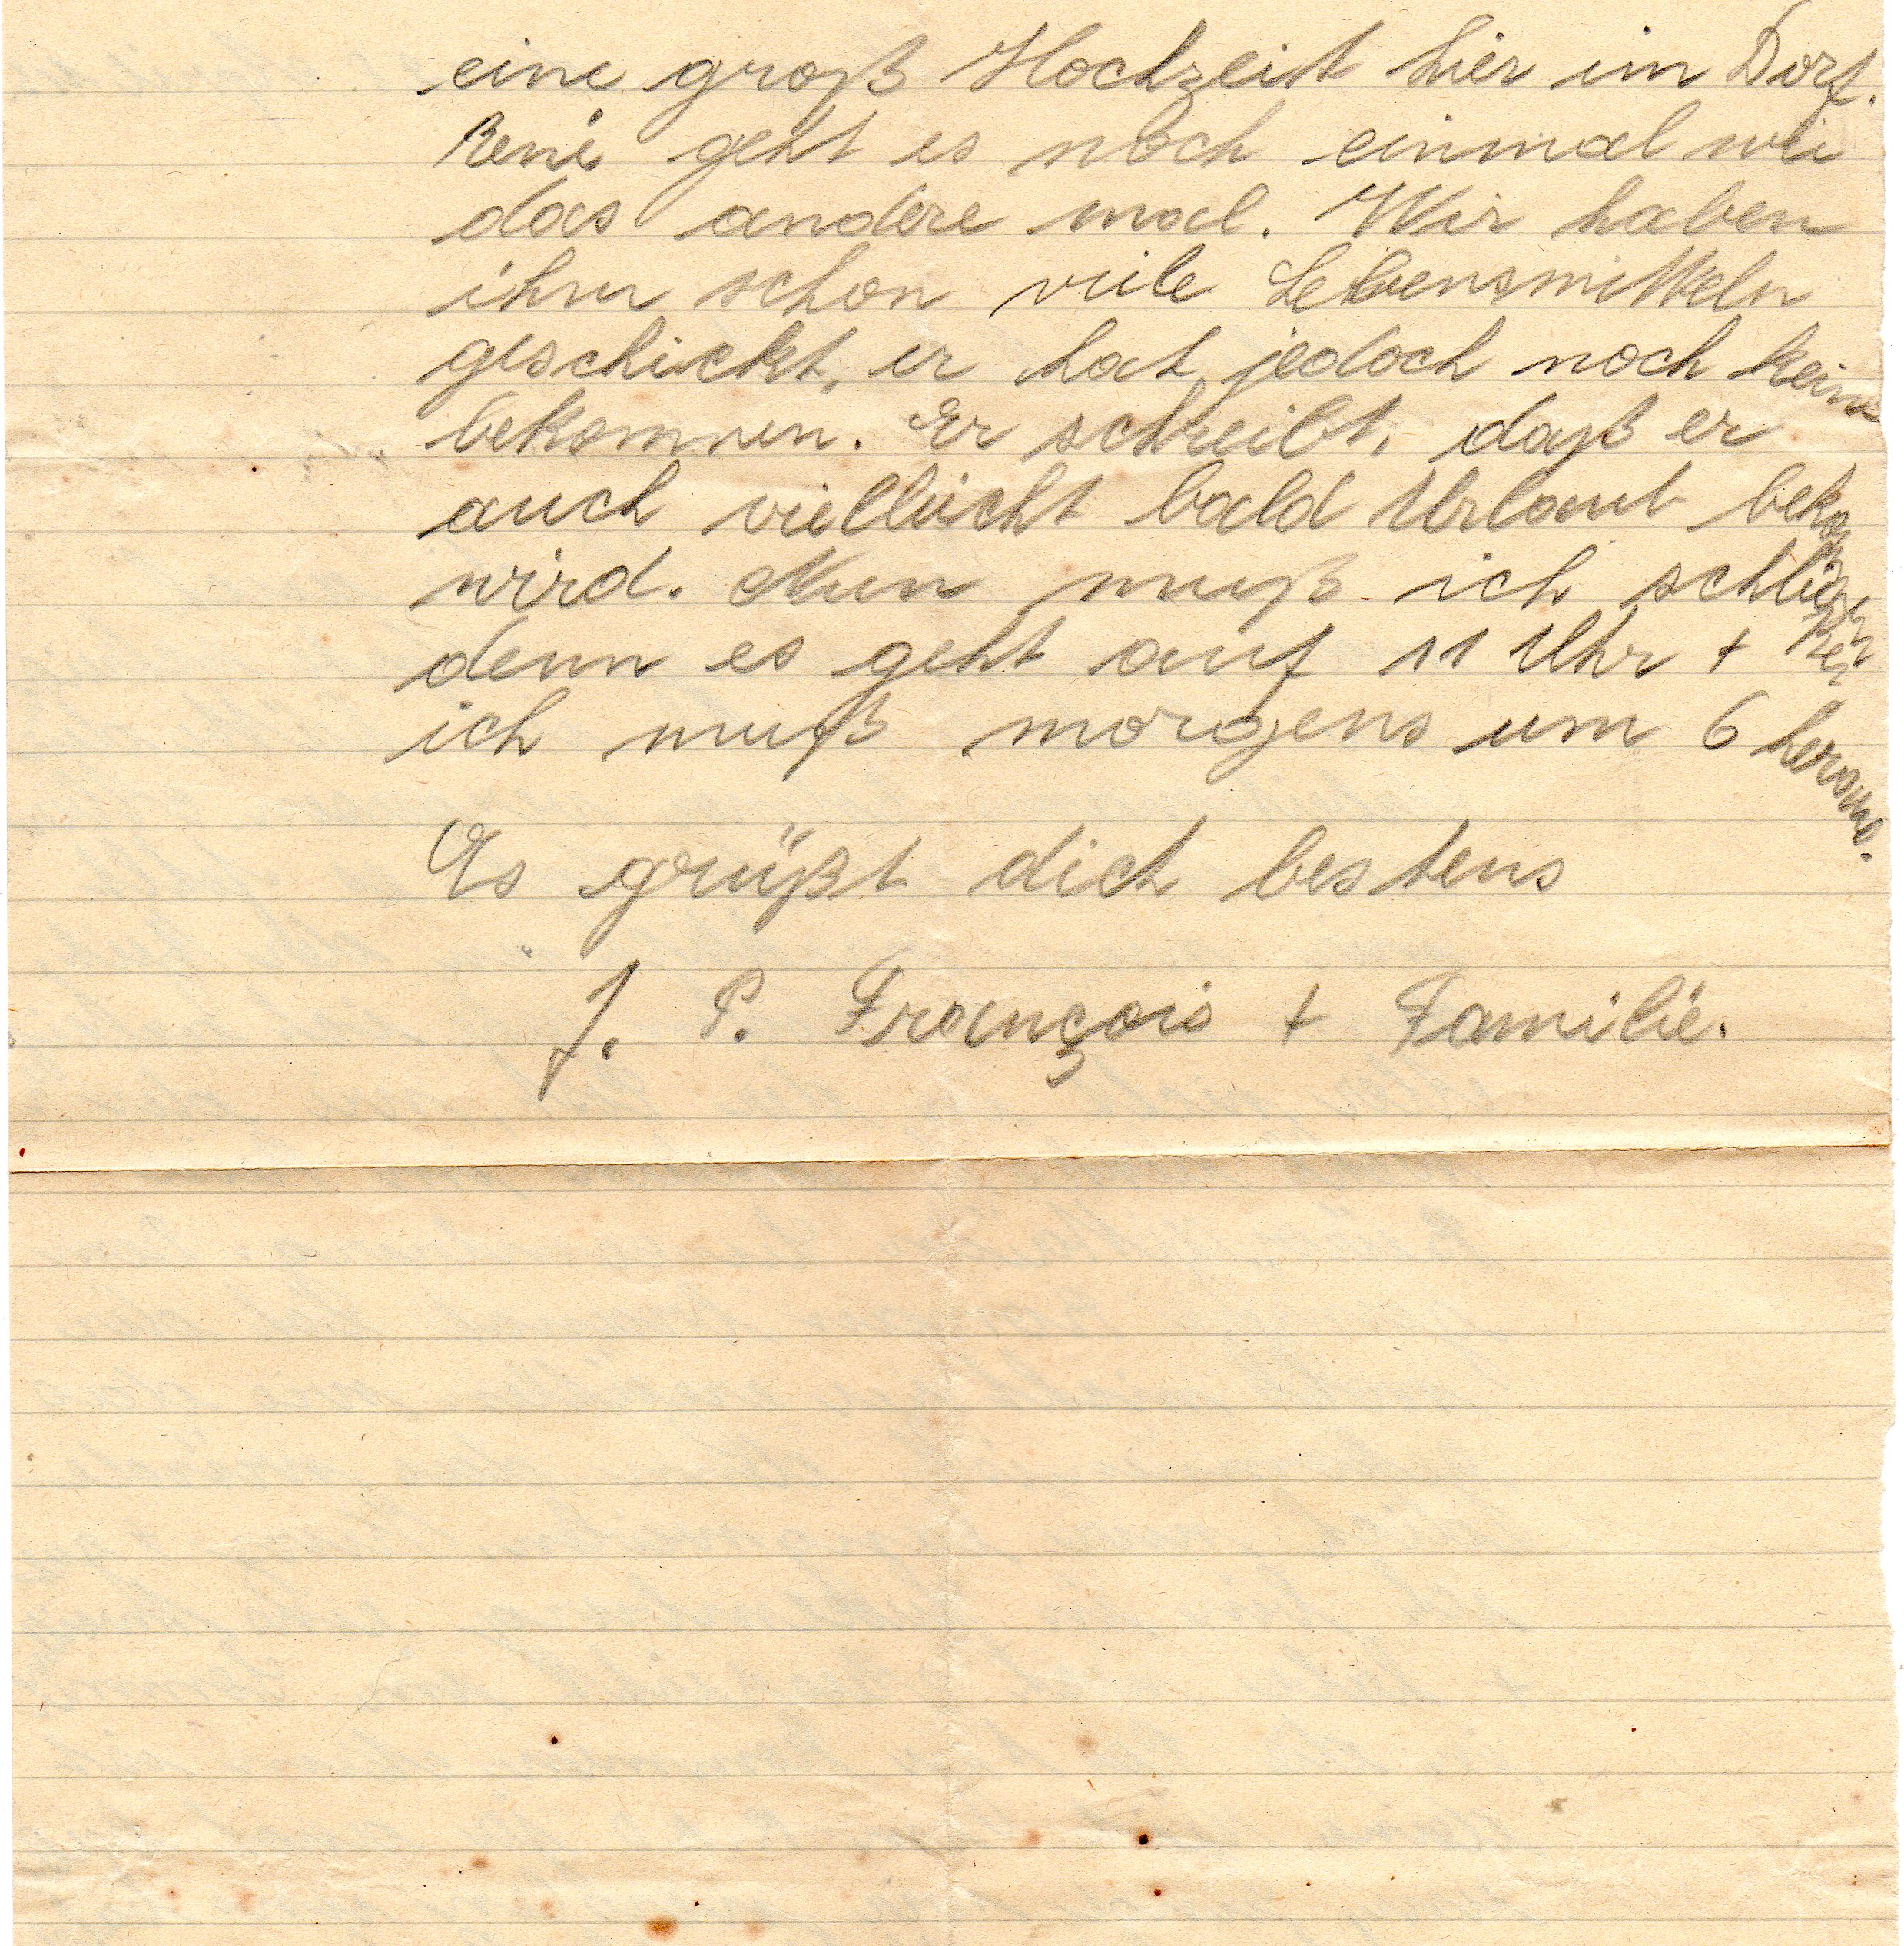 eine groß Hochzeit hier im Dorf.
René geht es noch einmal wie
das andere mal. Wir haben
ihm schon viele Lebensmitteln
geschickt, er hat jedoch noch keine
bekommen. Er schreibt, daß er
auch vielleicht bald Urlaub bekommen
wird. Nun muß ich schließen
denn es geht auf 11 Uhr +
ich muß morgens um 6 heraus.
Es grüßt dich bestens
J. P. François + Familie.